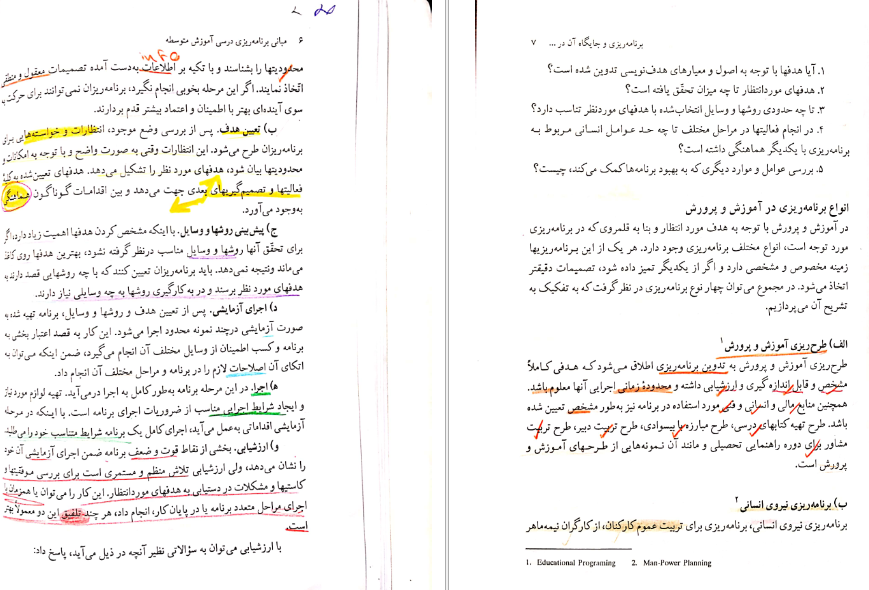 ۶ مبانی برنامه‌ریزی درسی آموزش متوسطه
info
محدودیتها را بشناسند و با تکیه بر اطلاعات به‌دست آمده تصمیمات معقول و منطقی
اتّخاذ نمایند. اگر این مرحله بخوبی انجام نگیرد، برنامه‌ریزان نمی‌توانند برای حرکت به
سوی آینده‌ای بهتر با اطمینان و اعتماد بیشتر قدم بردارند.
ب) تعیین هدف. پس از بررسی وضع موجود، انتظارات و خواسته‌هایی برای
برنامه‌ریزان طرح می‌شود. این انتظارات وقتی به صورت واضح و با توجه به امکانات و
محدودیتها بیان شود، هدفهای مورد نظر را تشکیل می‌دهد. هدفهای تعیین‌شده به کلیّهٔ
فعالیتها و تصمیم‌گیریهای بعدی جهت می‌دهد و بین اقدامات گوناگون هماهنگی
به‌وجود می‌آورد.
ج) پیش‌بینی روشها و وسایل. با اینکه مشخص کردن هدفها اهمیت زیاد دارد، اگر
برای تحقّق آنها روشها و وسایل مناسب درنظر گرفته نشود، بهترین هدفها روی کاغذ
می‌ماند و نتیجه نمی‌دهد. باید برنامه‌ریزان تعیین کنند که با چه روشهایی قصد دارند به
هدفهای مورد نظر برسند و در به کارگیری روشها به چه وسایلی نیاز دارند.
د) اجرای آزمایشی. پس از تعیین هدف و روشها و وسایل، برنامه تهیه شده به
صورت آزمایشی درچند نمونه محدود اجرا می‌شود. این کار به قصد اعتبار بخشی به
برنامه و کسب اطمینان از وسایل مختلف آن انجام می‌گیرد، ضمن اینکه می‌توان به
اتکای آن اصلاحات لازم را در برنامه و مراحل مختلف آن انجام داد.
ه) اجرا. در این مرحله برنامه به‌طور کامل به اجرا درمی‌آید. تهیه لوازم مورد نیاز
و ایجاد شرایط اجرایی مناسب از ضروریات اجرای برنامه است. با اینکه در مرحله
آزمایشی اقداماتی به‌عمل می‌آید، اجرای کامل یک برنامه شرایط متناسب خود را می‌طلبد.
و) ارزشیابی. بخشی از نقاط قوت و ضعف برنامه ضمن اجرای آزمایشی آن خود
را نشان می‌دهد، ولی ارزشیابی تلاش منظم و مستمری است برای بررسی موفقیتها و
کاستیها و مشکلات در دستیابی به هدفهای موردانتظار. این کار را می‌توان یا همزمان با
اجرای مراحل متعدد برنامه یا در پایان کار، انجام داد، هر چند تلفیق این دو معمولاً بهتر
است.
با ارزشیابی می‌توان به سؤالاتی نظیر آنچه در ذیل می‌آید، پاسخ داد:
برنامه‌ریزی و جایگاه آن در ... ۷
۱. آیا هدفها با توجه به اصول و معیارهای هدف‌نویسی تدوین شده است؟
۲. هدفهای موردانتظار تا چه میزان تحقّق یافته است؟
۳. تا چه حدودی روشها و وسایل انتخاب‌شده با هدفهای موردنظر تناسب دارد؟
۴. در انجام فعالیتها در مراحل مختلف تا چه حد عوامل انسانی مربوط به
برنامه‌ریزی با یکدیگر هماهنگی داشته است؟
۵. بررسی عوامل و موارد دیگری که به بهبود برنامه‌ها کمک می‌کند، چیست؟
انواع برنامه‌ریزی در آموزش و پرورش
در آموزش و پرورش با توجه به هدف مورد انتظار و بنا به قلمروی که در برنامه‌ریزی
مورد توجه است، انواع مختلف برنامه‌ریزی وجود دارد. هر یک از این برنامه‌ریزیها
زمینه مخصوص و مشخصی دارد و اگر از یکدیگر تمیز داده شود، تصمیمات دقیقتر
اتخاذ می‌شود. در مجموع می‌توان چهار نوع برنامه‌ریزی در نظر گرفت که به تفکیک به
تشریح آن می‌پردازیم.
الف) طرح‌ریزی آموزش و پرورش۱
طرح‌ریزی آموزش و پرورش به تدوین برنامه‌ریزی اطلاق می‌شود که هدفی کاملاً
مشخص و قابل اندازه گیری و ارزشیابی داشته و محدودهٔ زمانی اجرایی آنها معلوم باشد.
همچنین منابع مالی و انسانی و فنی مورد استفاده در برنامه نیز به‌طور مشخص تعیین شده
باشد. طرح تهیه کتابهای درسی، طرح مبارزه با بیسوادی، طرح تربیت دبیر، طرح تربیت
مشاور برای دوره راهنمایی تحصیلی و مانند آن نمونه‌هایی از طرحهای آموزش و
پرورش است.
ب) برنامه‌ریزی نیروی انسانی۲
برنامه‌ریزی نیروی انسانی، برنامه‌ریزی برای تربیت عموم کارکنان، از کارگران نیمه‌ماهر
1. Educational Programing 2. Man-Power Planning